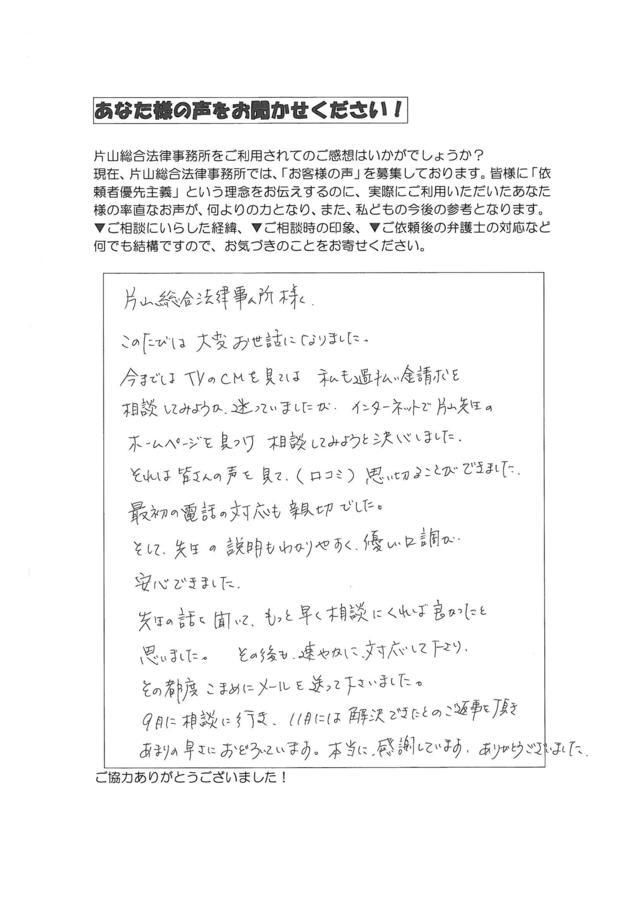 あなた様の声をお聞かせください！
片山総合法律事務所をご利用されてのご感想はいかがでしょうか？
現在、片山総合法律事務所では、「お客様の声」を募集しております。皆様に「依
頼者優先主義」という理念をお伝えするのに、実際にご利用いただいたあなた
様の率直なお声が、何よりの力となり、また、私どもの今後の参考となります。
▼ご相談にいらした経緯、▼ご相談時の印象、▼ご依頼後の弁護士の対応など
何でも結構ですので、お気づきのことをお寄せください。
片山総合法律事ム所様へ
このたびは 大変お世話になりました。
今まではTVのCMを見ては 私も過払い金請求を
相談してみようか、迷っていましたが、インターネットで片山先生の
ホームページを見つけ 相談してみようと決心しました。
それは皆さんの声を見て、(口コミ) 思い切ることができました。
最初の電話の対応も親切でした。
そして、先生の説明もわかりやすく、優しい口調が
安心できました。
先生の話を聞いて、もっと早く相談にくれば良かったと
思いました。 その後も、速やかに、対応して下さり、
その都度こまめにメールを送って下さいました。
9月に相談に行き、11月には解決できたとのご返事を頂き
あまりの早さにおどろいています。本当に、感謝しています。ありがとうございました。
ご協力ありがとうございました！